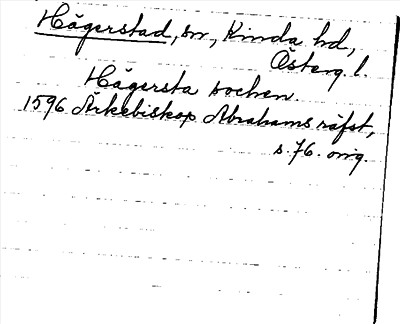 Hägerstad, sn, Kinda hd,
Österg. l.
Hägersta sochen.
1596 Ärkebiskop Abrahams räfst,
s. 76. orig.